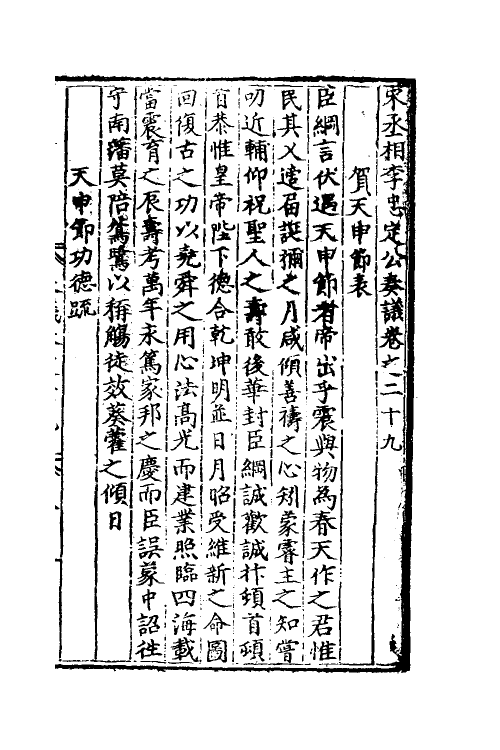 宋丞相李忠定公奏議卷之二十九
賀天申節表
臣綱言伏遇天申節者帝出乎震與物為春天作之君惟
民其乂逺屆誕彌之月咸傾善禱之心矧蒙睿主之知嘗
叨近輔仰祝聖人之壽敢後華封臣綱誠歡誠抃頓首頓
首恭惟皇帝陛下德合乾坤明並日月昭受維新之命圖
回復古之功以堯舜之用心法高光而建業照臨四海載
當震育之辰壽考萬年永篤家邦之慶而臣誤蒙中詔徃
守南藩莫陪鵷鷺以稱觴徒效葵藿之傾日
天申節功德疏